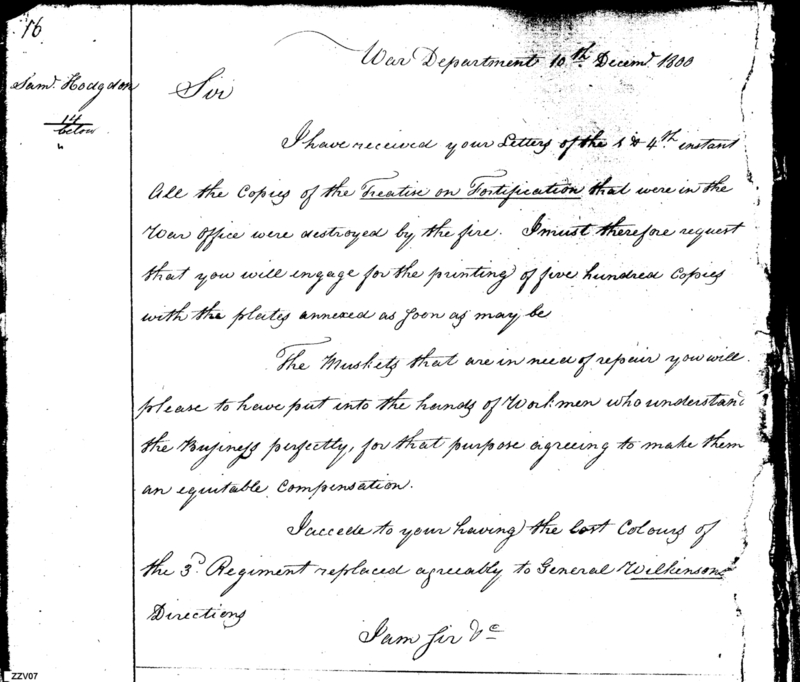 16
War Department 10th. Decemr. 1800
Saml. Hodgdon
Sir
14
below
"
I have received your Letters of the 1 & 4th instant
All the Copies of the Treatise on Fortification that were in the
War Office were destroyed by the fire. I must therefore request
that you will engage for the printing of five hundred Copies
with the plates annexed as soon as may be
The Muskets that are in need of repair you will
please to have put into the hands of Workmen who understand
the Business perfectly, for that purpose agreeing to make them
an equitable compensation.
I accede to your having the lost Colours of
the 3d. Regiment replaced agreeably to General Wilkinsons
Directions
I am Sir &c
ZZV07